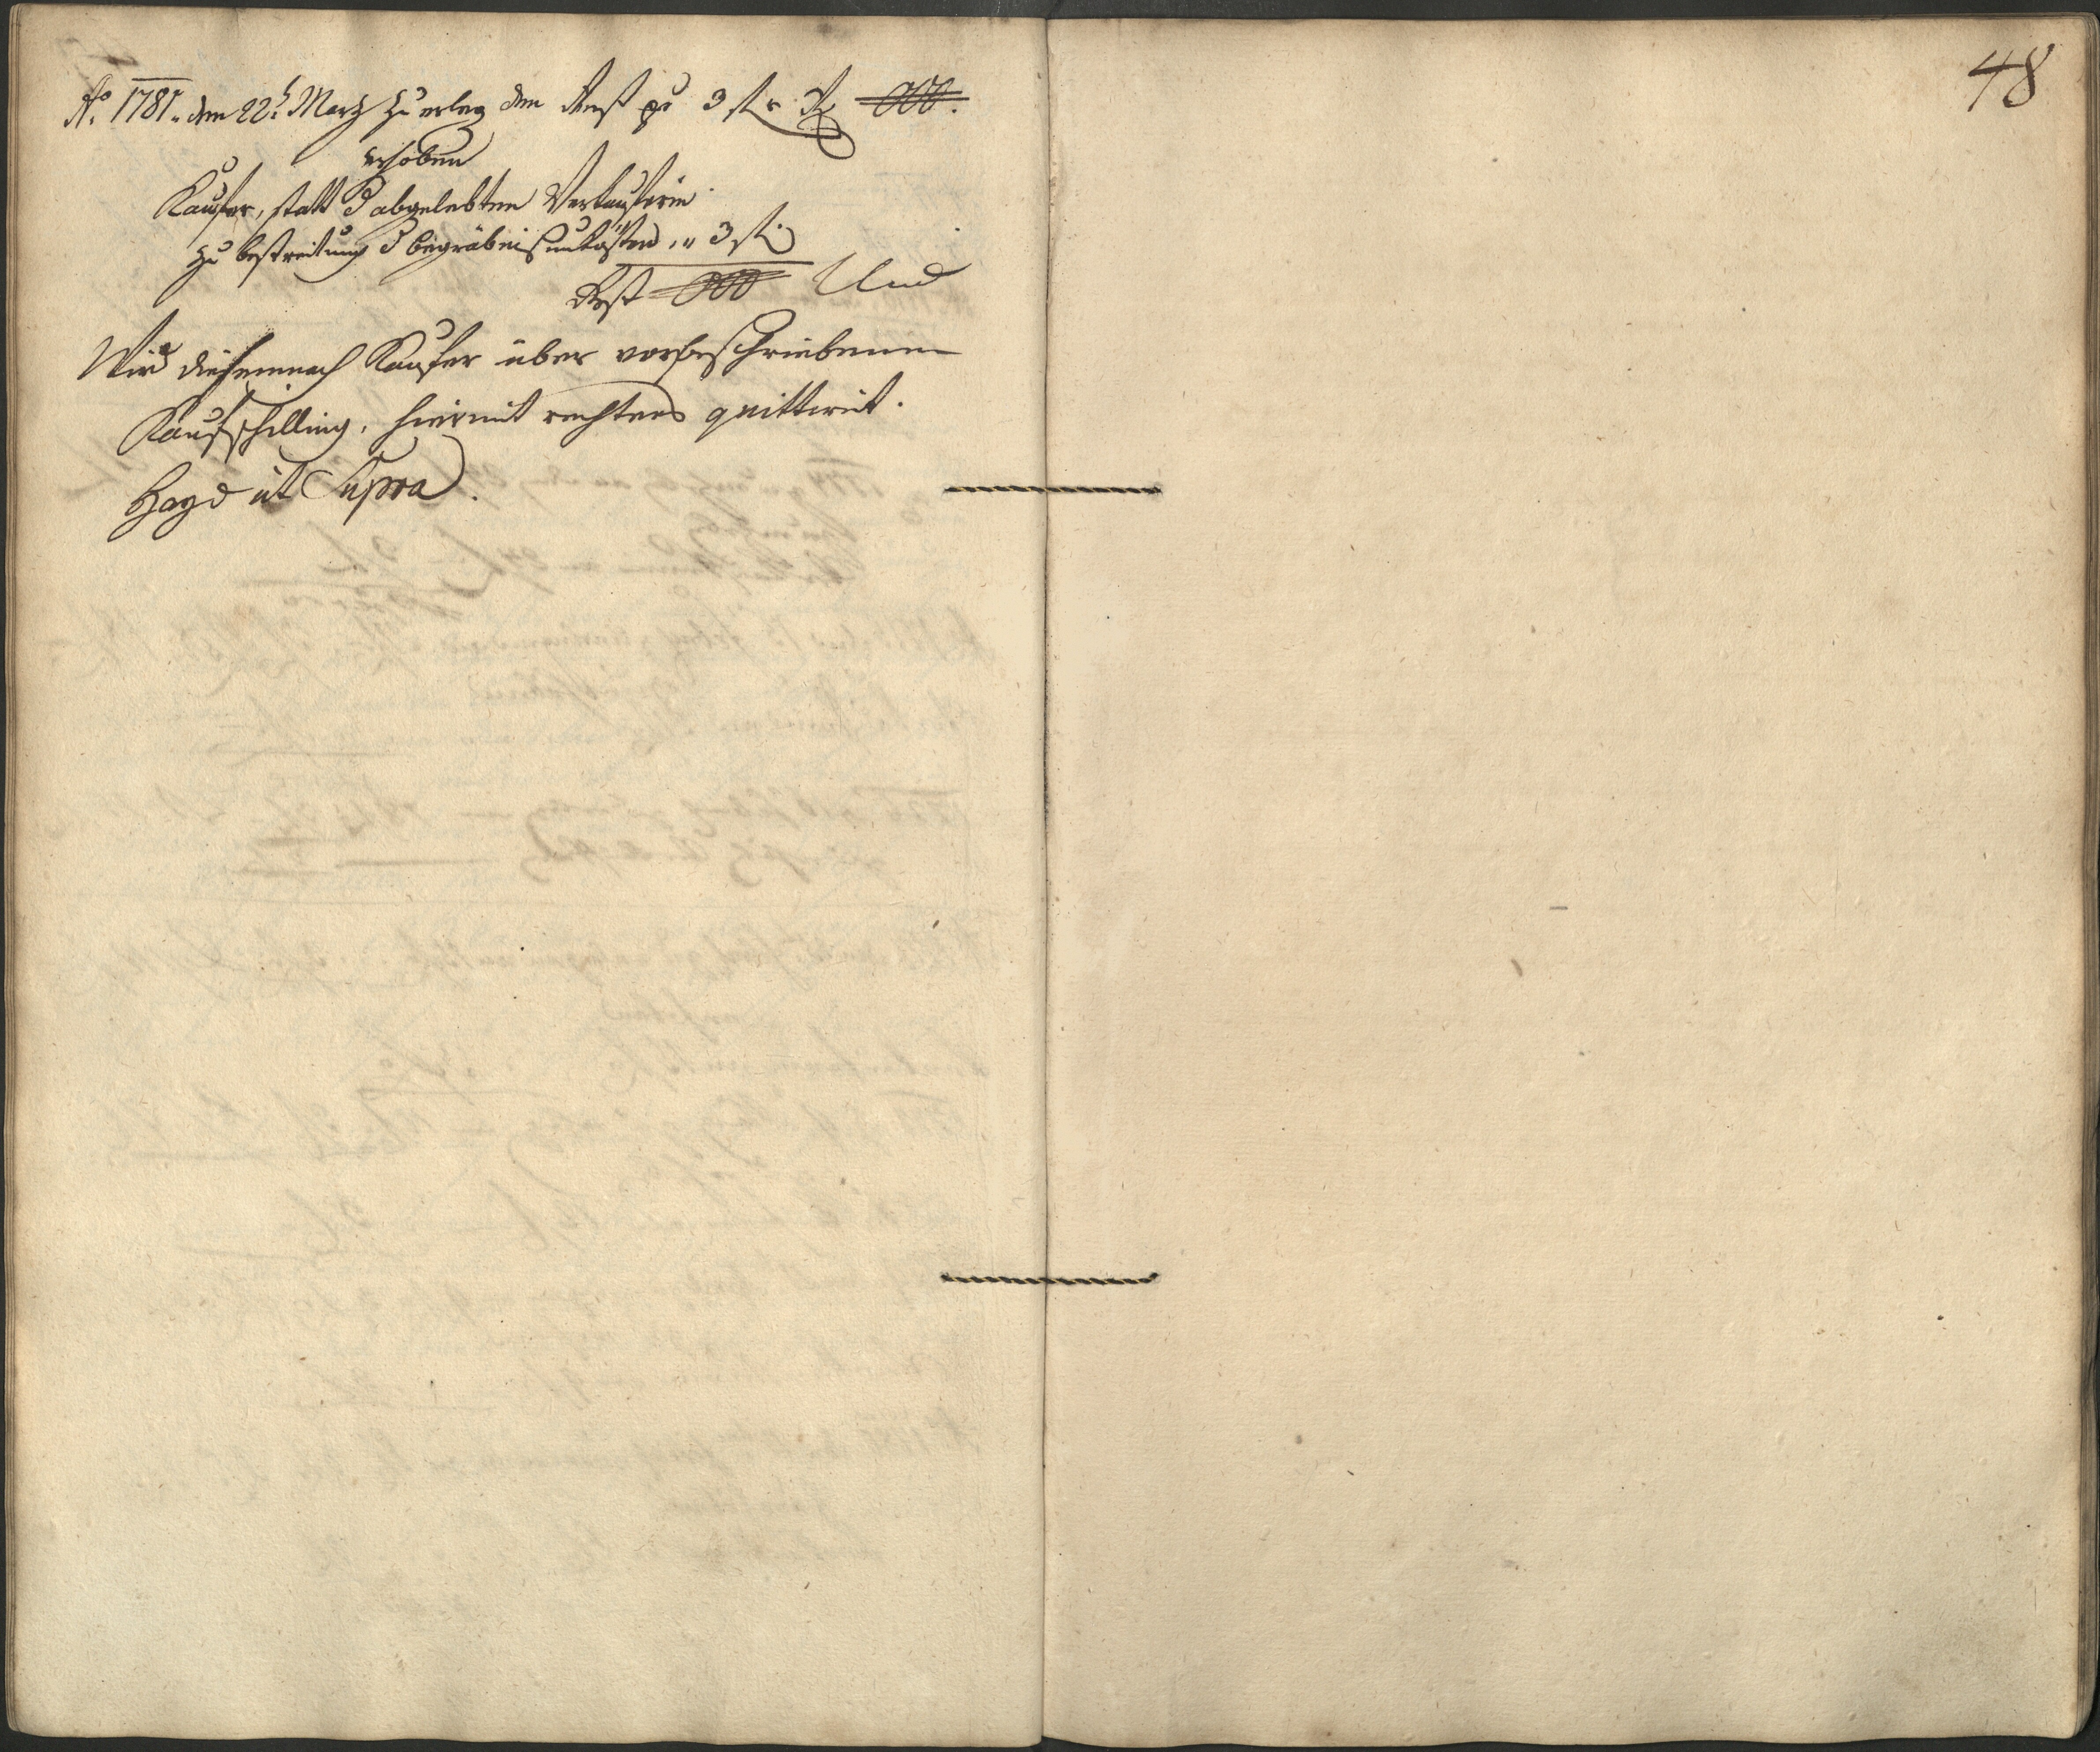 48
Aō 1781. den 22t. Martz Zu erleg den Rest pr 3 fl r. Rt 000.
erhoben
Kaufer, statt d abgelebten Verkauferin
zu bestreitung d begräbnis unkosten, " 3 fl.
Rest 000 Und
Wird diesemnach Kaufer über vorbeschriebenen
Kaufschilling, hiermit rechtens quittirt.
Hayd ut Supra.